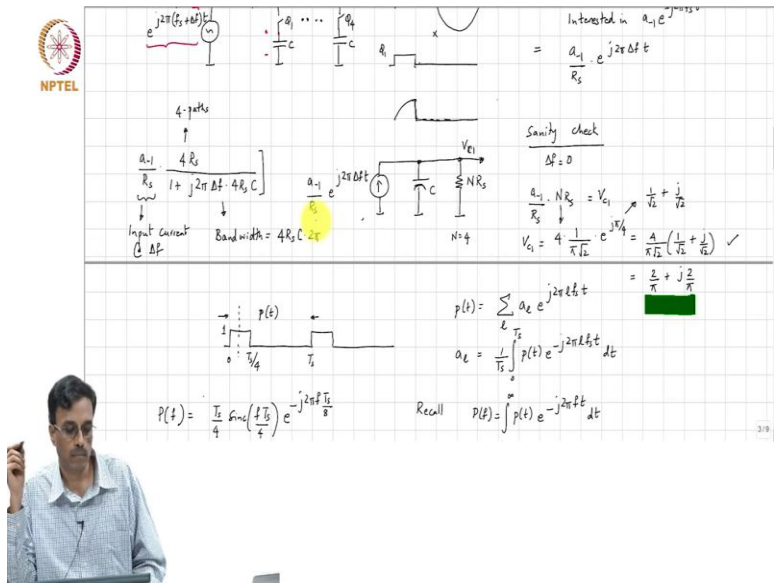 e^{j2π(f_s+Δf)t}
Q_1 .... Q_4
C C
x
Interested in a_{-1} e^{-j2πf_s t}
Q_1
= a_{-1}/R_s · e^{j2πΔf t}
NPTEL
4-paths
a_{-1}/R_s · 4R_s / (1 + j2πΔf·4R_sC) ]
Input current @ Δf
Bandwidth = 4R_sC·2π
a_{-1}/R_s e^{j2πΔft}
C
V_{c1}
NR_s
N=4
Sanity check
Δf=0
a_{-1}/R_s · NR_s = V_{c1}
1/√2 + j/√2
V_{c1} = 4 · 1/(π√2) · e^{jπ/4} = 4/(π√2) (1/√2 + j/√2) ✓
= 2/π + j 2/π
p(t)
1
0 T_s/4 T_s
p(t) = Σ_l a_l e^{j2πlf_st}
a_l = 1/T_s ∫_0^{T_s} p(t) e^{-j2πlf_st} dt
P(f) = T_s/4 sinc(fT_s/4) e^{-j2πf T_s/8}
Recall P(f) = ∫^∞ p(t) e^{-j2πft} dt
3/9